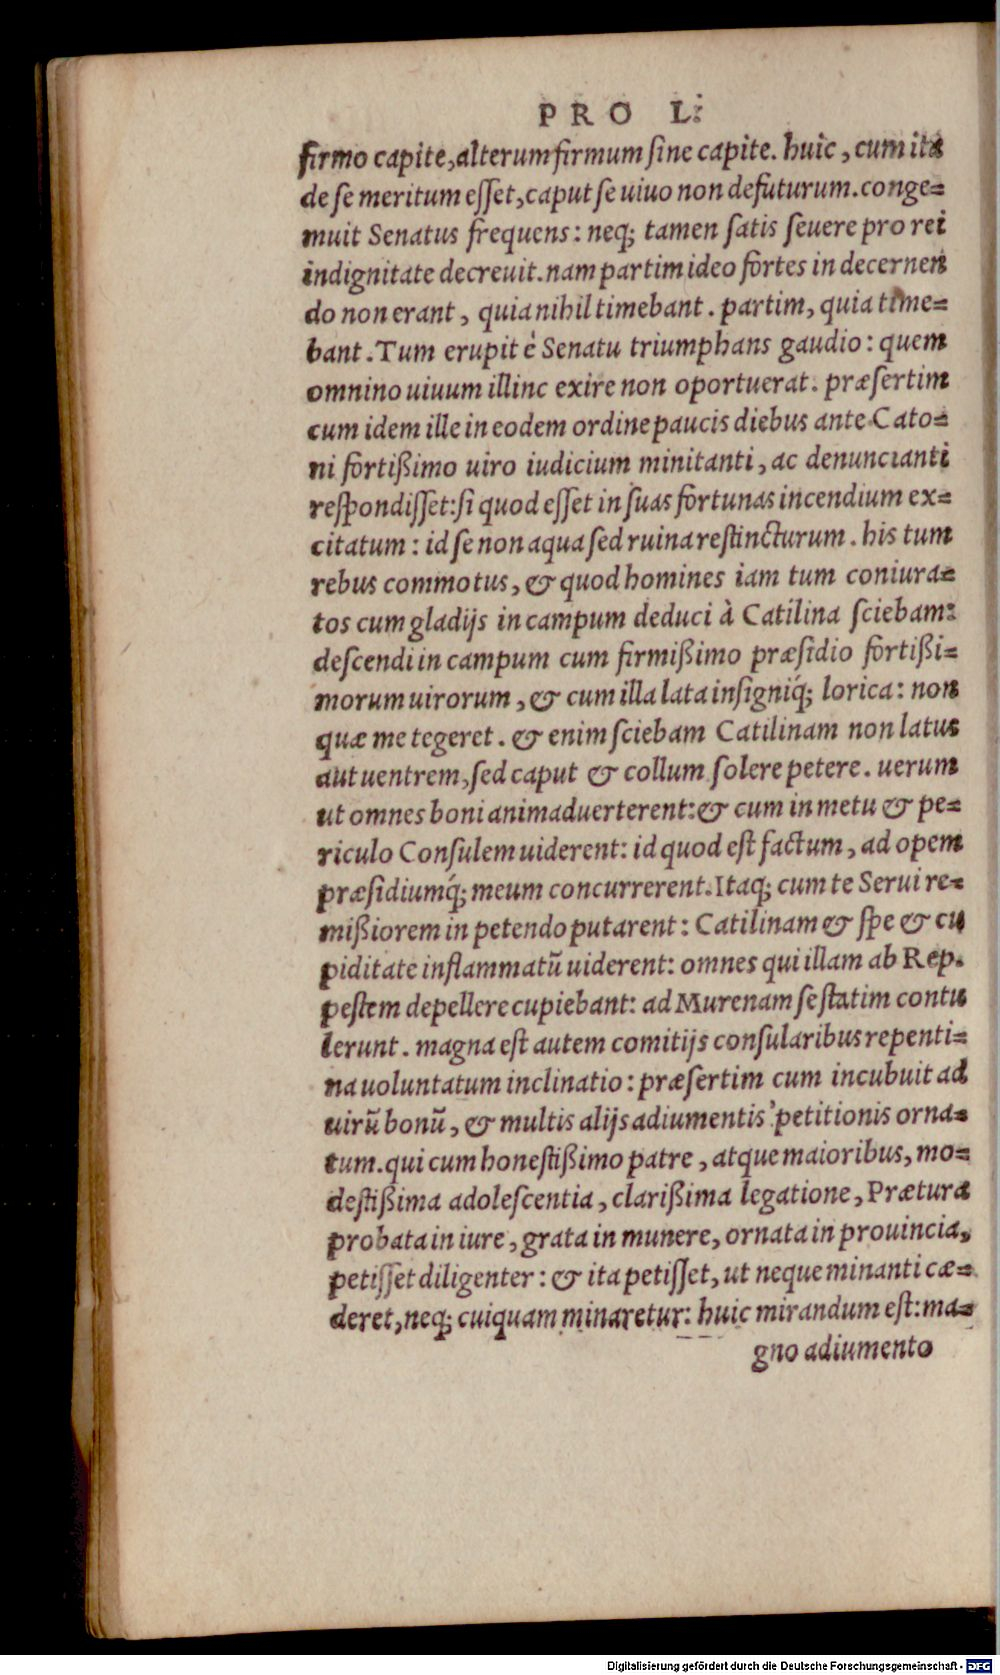 PRO L.
firmo capite, alterum firmum sine capite. huic, cum ita
de se meritum esset, caput se uiuo non defuturum. conge=
muit Senatus frequens: neq; tamen satis seuere pro rei
indignitate decreuit. nam partim ideo fortes in decernen
do non erant, quia nihil timebant. partim, quia time=
bant. Tum erupit è Senatu triumphans gaudio: quem
omnino uiuum illinc exire non oportuerat. præsertim
cum idem ille in eodem ordine paucis diebus ante Cato=
ni fortißimo uiro iudicium minitanti, ac denuncianti
respondisset: si quod esset in suas fortunas incendium ex=
citatum: id se non aqua sed ruina restincturum. his tum
rebus commotus, & quod homines iam tum coniura=
tos cum gladijs in campum deduci à Catilina sciebam:
descendi in campum cum firmißimo præsidio fortißi=
morum uirorum, & cum illa lata insigniq́; lorica: non
quæ me tegeret. & enim sciebam Catilinam non latus
aut uentrem, sed caput & collum solere petere. uerum
ut omnes boni animaduerterent: & cum in metu & pe=
riculo Consulem uiderent: id quod est factum, ad opem
præsidiumq́; meum concurrerent. Itaq; cum te Serui re=
mißiorem in petendo putarent: Catilinam & spe & cu
piditate inflammatũ uiderent: omnes qui illam ab Rep.
pestem depellere cupiebant: ad Murenam se statim contu
lerunt. magna est autem comitijs consularibus repenti=
na uoluntatum inclinatio: præsertim cum incubuit ad
uirũ bonũ, & multis alijs adiumentis petitionis orna=
tum. qui cum honestißimo patre, atque maioribus, mo=
destißima adolescentia, clarißima legatione, Prætura
probata in iure, grata in munere, ornata in prouincia,
petisset diligenter: & ita petisset, ut neque minanti cæ=
deret, neq; cuiquam minaretur: huic mirandum est: ma=
gno adiumento
Digitalisierung gefördert durch die Deutsche Forschungsgemeinschaft - DFG